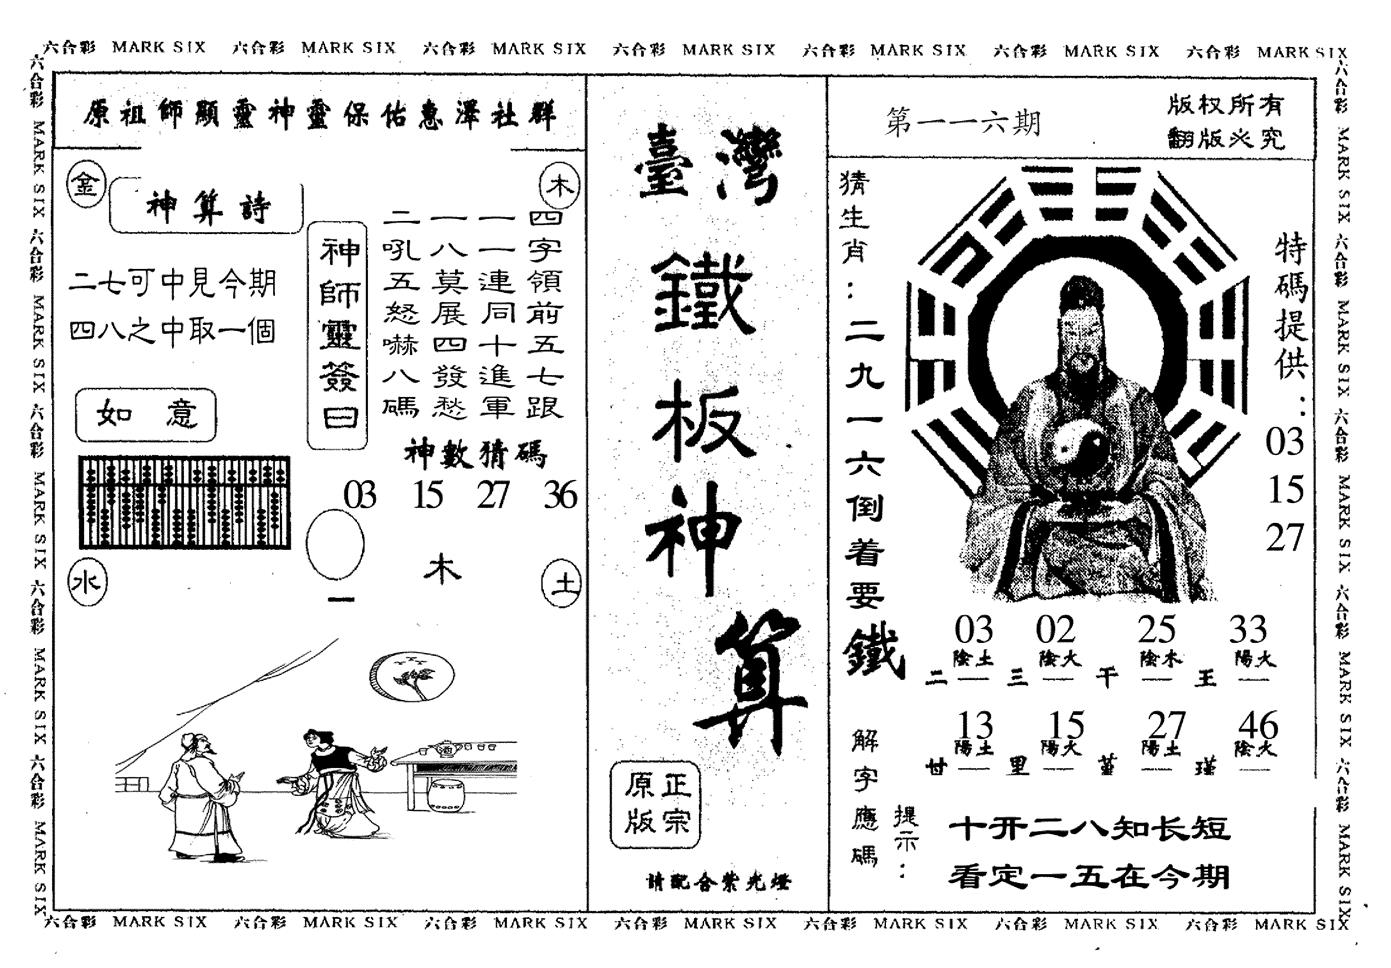 六合彩 MARK SIX 六合彩 MARK SIX 六合彩 MARK SIX 六合彩 MARK SIX 六合彩 MARK SIX 六合彩 MARK SIX 六合彩 MARK SIX
六合彩 MARK SIX 六合彩 MARK SIX 六合彩 MARK SIX 六合彩 MARK SIX 六合彩 MARK SIX
原祖師顯靈神靈保佑惠澤社群
金
木
神算詩
二七可中見今期
四八之中取一個
如意
神師靈簽曰
四字領前五七跟
一一連同十進軍
一八莫展四發愁
二吼五怒嚇八碼
神數猜碼
03 15 27 36
水
一
木
土
臺灣
鐵板神算
正宗
原版
請配合紫光燈
第一一六期
版权所有
翻版必究
猜生肖：二九一六倒着要
鐵
特碼提供：
03
15
27
03 02 25 33
陰土 陰火 陰木 陽火
二 三 干 王
13 15 27 46
陽土 陽火 陽土 陰火
廿 里 堇 瑾
解字應碼
提示：
十开二八知长短
看定一五在今期
六合彩 MARK SIX 六合彩 MARK SIX 六合彩 MARK SIX 六合彩 MARK SIX 六合彩 MARK SIX
六合彩 MARK SIX 六合彩 MARK SIX 六合彩 MARK SIX 六合彩 MARK SIX 六合彩 MARK SIX 六合彩 MARK SIX 六合彩 MARK SIX